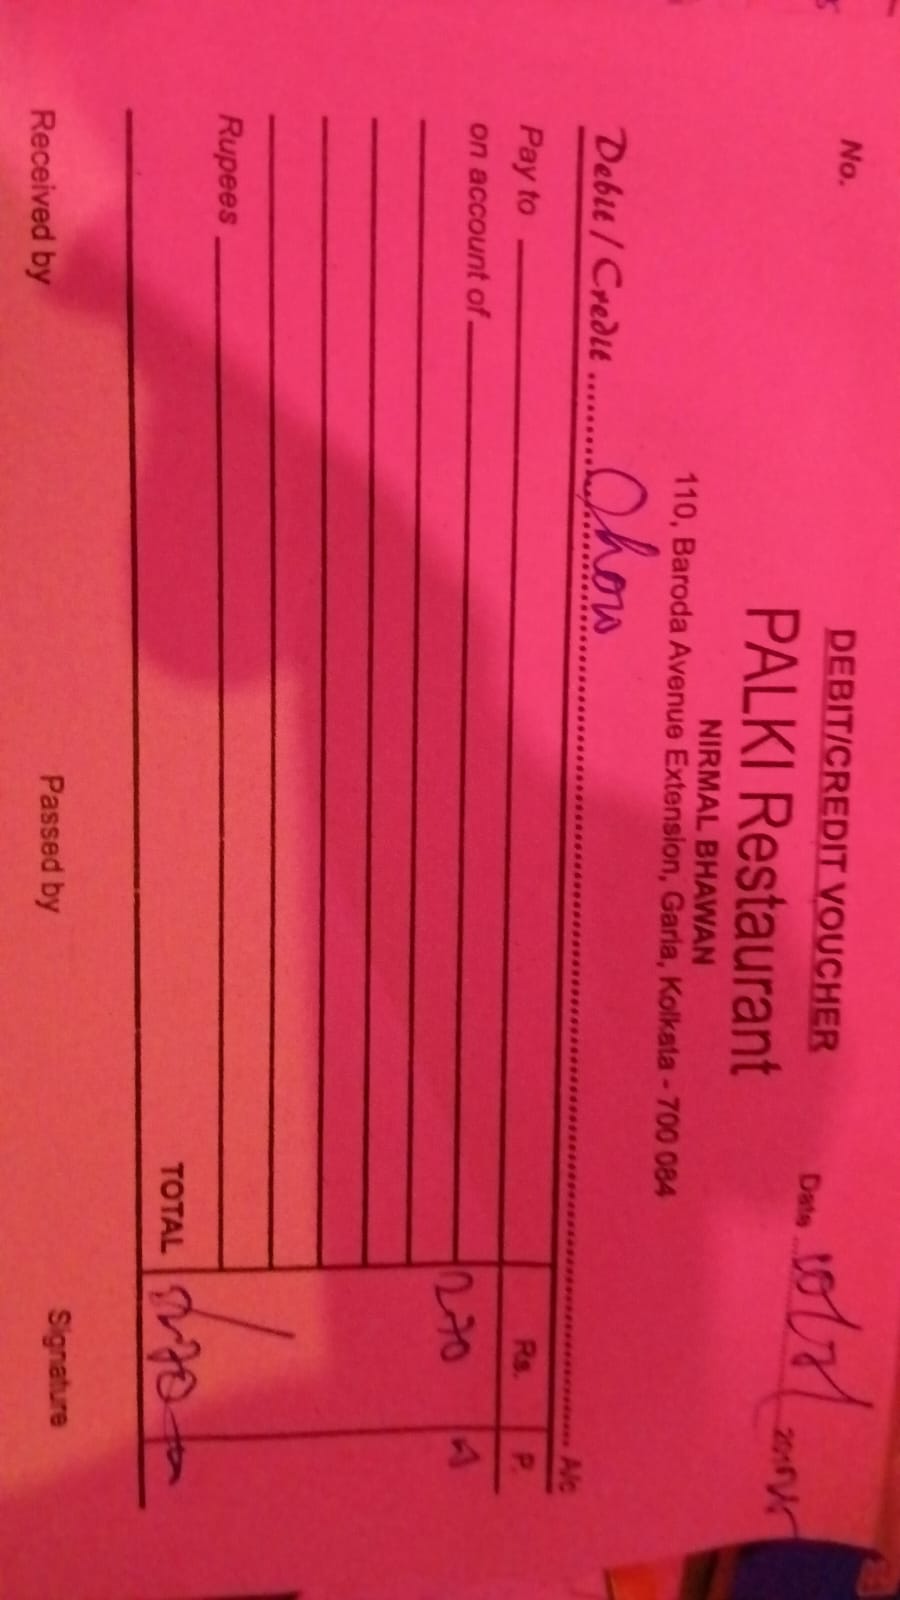 DEBIT/CREDIT VOUCHER
No.
PALKI Restaurant
Date
NIRMAL BHAWAN
110, Baroda Avenue Extension, Garia, Kolkata - 700 084
Debit / Credit Chow A/c
Pay to Rs. P.
on account of 270
Rupees
TOTAL 270
Received by Passed by Signature